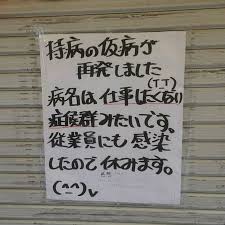 持病の仮病が
再発しました
(T_T)
病名は仕事したくない
症候群みたいです。
従業員にも感染
したので休みます。
(^^)v